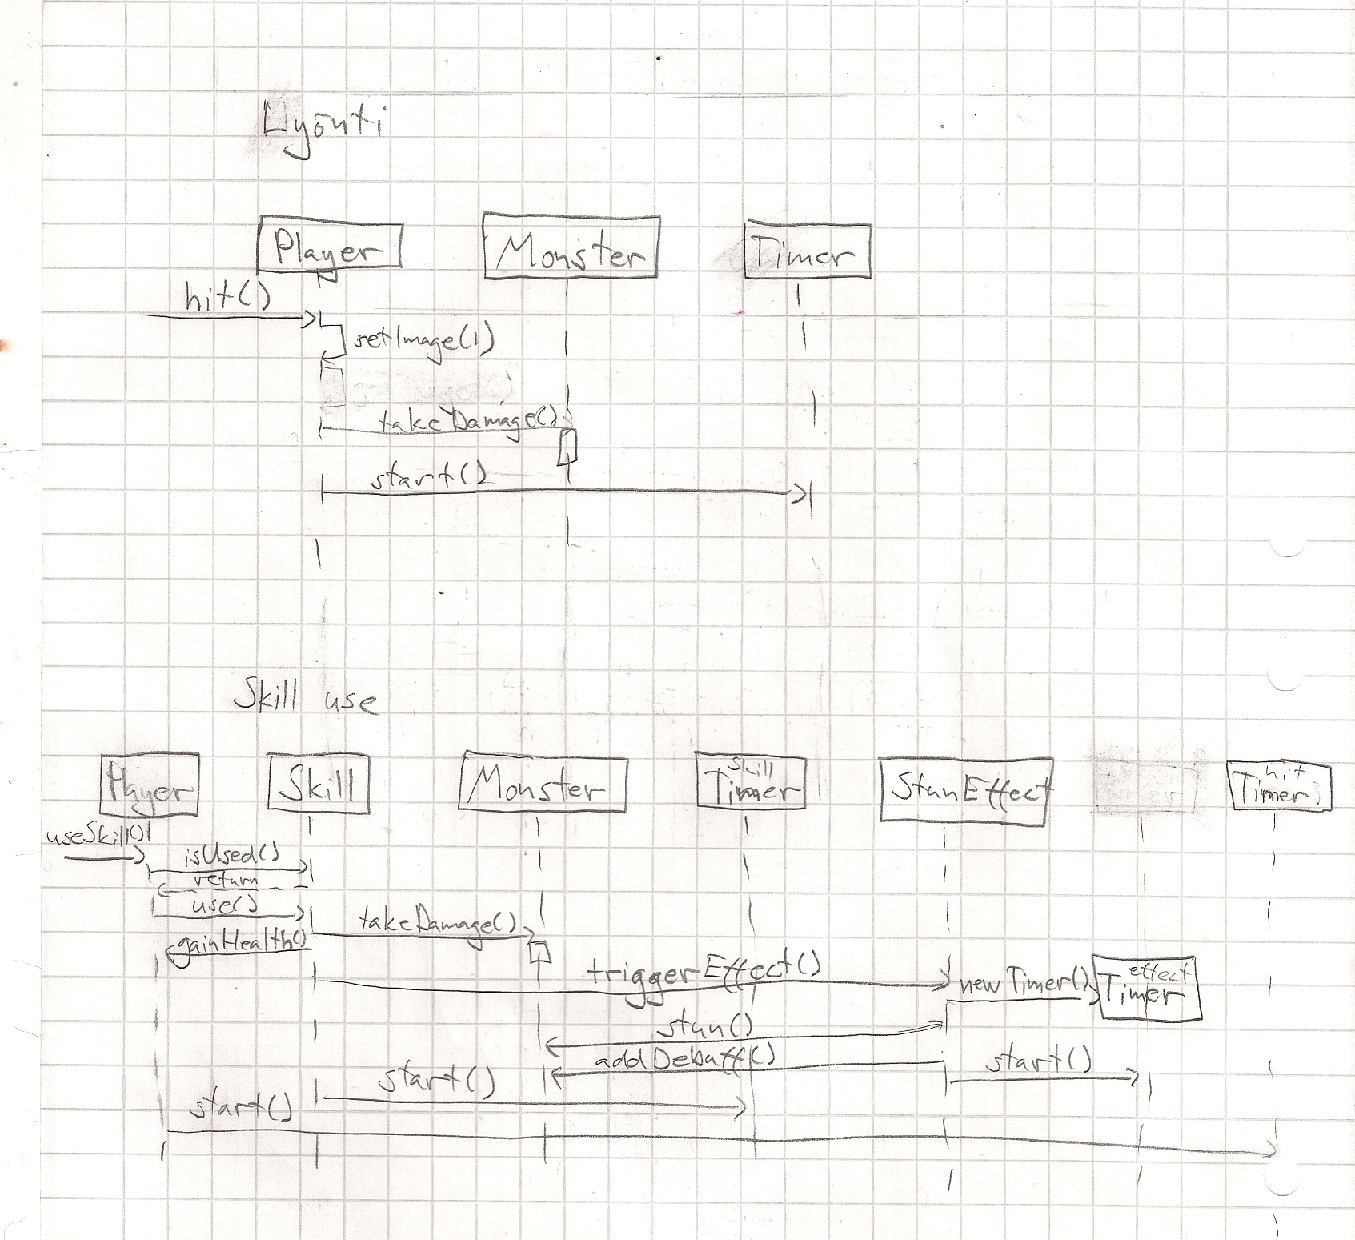 Lyönti
Player
Monster
Timer
hit()
setImage(1)
takeDamage()
start()
Skill use
Player
Skill
Monster
skill
Timer
StunEffect
hit
Timer
useSkill()
isUsed()
return
use()
takeDamage()
gainHealth()
triggerEffect()
newTimer()
effect
Timer
stun()
addDebuff()
start()
start()
start()